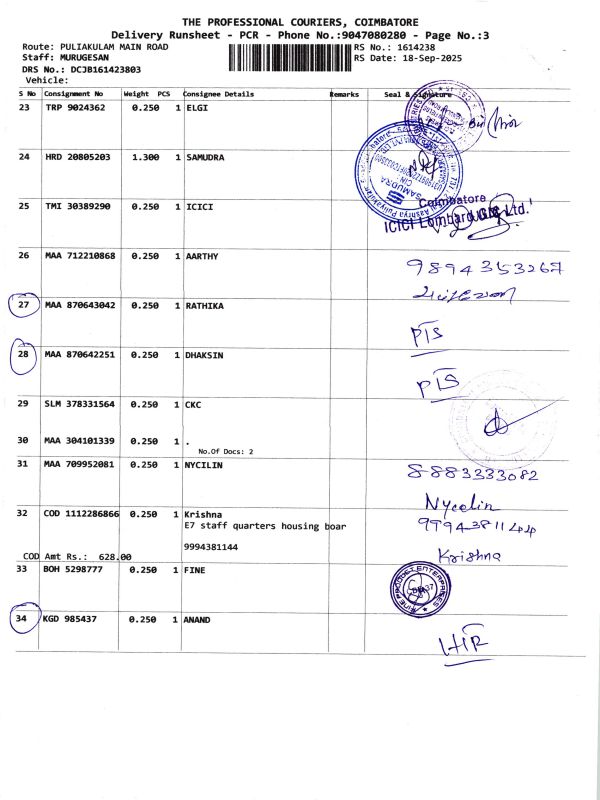 THE PROFESSIONAL COURIERS, COIMBATORE
Delivery Runsheet - PCR - Phone No.:9047080280 - Page No.:3
Route: PULIAKULAM MAIN ROAD RS No.: 1614238
Staff: MURUGESAN RS Date: 18-Sep-2025
DRS No.: DCJB161423803
Vehicle:
S No Consignment No Weight PCS Consignee Details Remarks Seal & Signature
23 TRP 9024362 0.250 1 ELGI
24 HRD 20805203 1.300 1 SAMUDRA
SAMUDRA
25 TMI 30389290 0.250 1 ICICI
Coimbatore
ICICI Lombard GIC Ltd.
26 MAA 712210868 0.250 1 AARTHY
9894353267
27 MAA 870643042 0.250 1 RATHIKA
PTS
28 MAA 870642251 0.250 1 DHAKSIN
PTS
29 SLM 378331564 0.250 1 CKC
30 MAA 304101339 0.250 1 .
No.Of Docs: 2
31 MAA 709952081 0.250 1 NYCILIN
8883333082
Nycelin
32 COD 1112286866 0.250 1 Krishna
E7 staff quarters housing boar
9994381144
9994381144
Krishna
COD Amt Rs.: 628.00
33 BOH 5298777 0.250 1 FINE
34 KGD 985437 0.250 1 ANAND